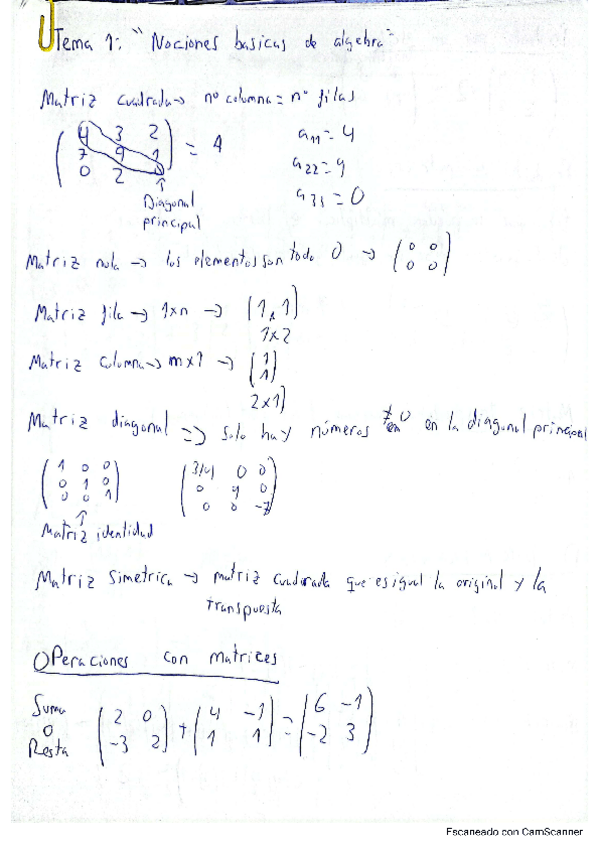 Tema 1: "Nociones basicas de algebra"
Matriz cuadrada → nº columna = nº filas
( 4 3 2 ) a11 = 4
7 9 1 = A a22 = 9
0 2 a31 = 0
Diagonal
principal
Matriz nula → los elementos son todo 0 → ( 0 0
0 0 )
Matriz fila → 1xn → (1, 1)
1x2
Matriz columna → mx1 → ( 1
1 )
2x1)
Matriz diagonal => solo hay números ≠ 0 en la diagonal principal
( 1 0 0 ( 3/4 0 0
0 1 0 0 9 0
0 0 1 ) 0 0 -7 )
Matriz identidad
Matriz simetrica → matriz cuadrada que es igual la original y la
transpuesta
Operaciones con matrices
Suma
o ( 2 0 + ( 4 -1 = ( 6 -1
Resta -3 2 ) 1 1 ) -2 3 )
Escaneado con CamScanner